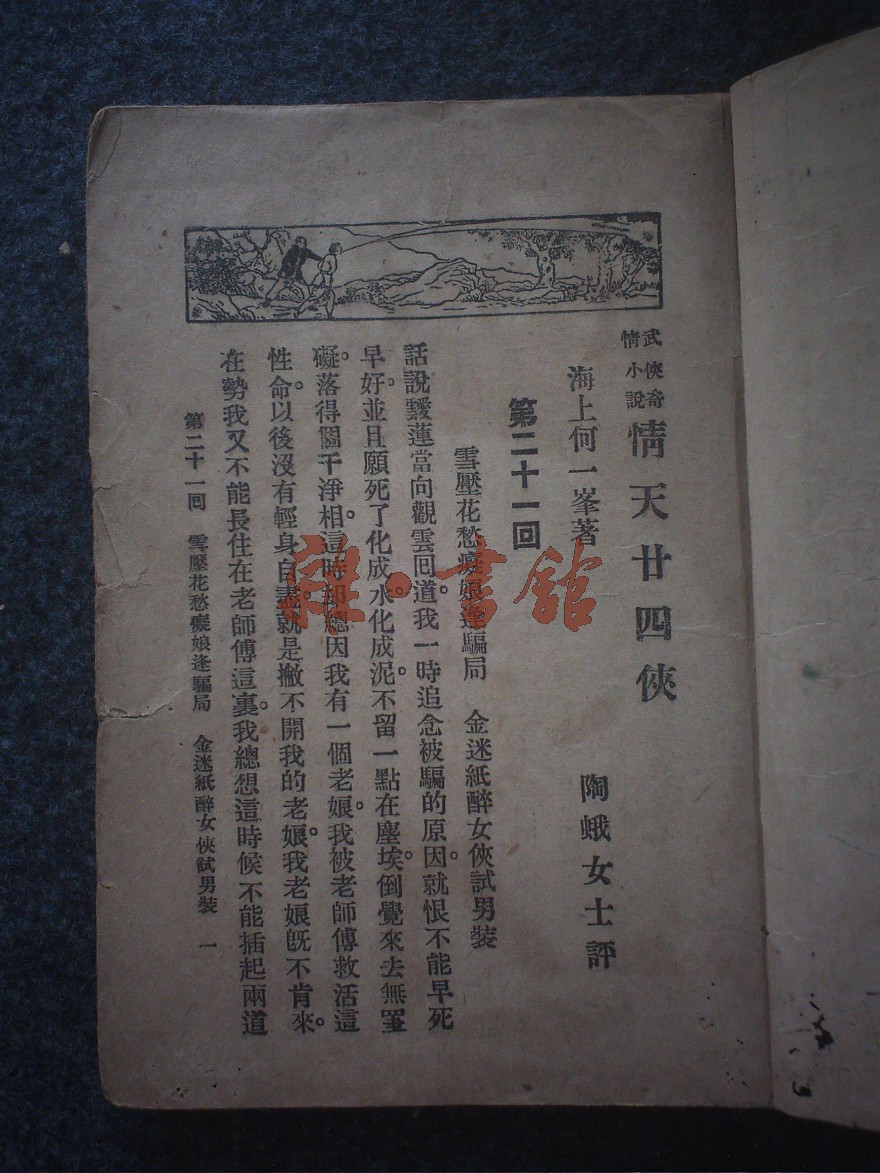 武俠奇情小說 情天廿四俠
海上何一峯著 陶蛾女士評
第二十一回
雪壓花愁癡娘逢騙局 金迷紙醉女俠試男裝
話說靉蓮當向觀雲回道。我一時追念被騙的原因。就恨不能早死
早好。並且願死了化成水。化成泥。不留一點在塵埃。倒覺來去無罣
礙。落得個干淨相。這時却總因我有一個老娘。我被老師傅救活這
性命。以後沒有輕身自盡。就是撇不開我的老娘。我老娘旣不肯來。
在勢我又不能長住在老師傅這裏。我總想這時候不能插起兩道
第二十一回 雪壓花愁癡娘逢騙局 金迷紙醉女俠試男裝 一
雜·書館